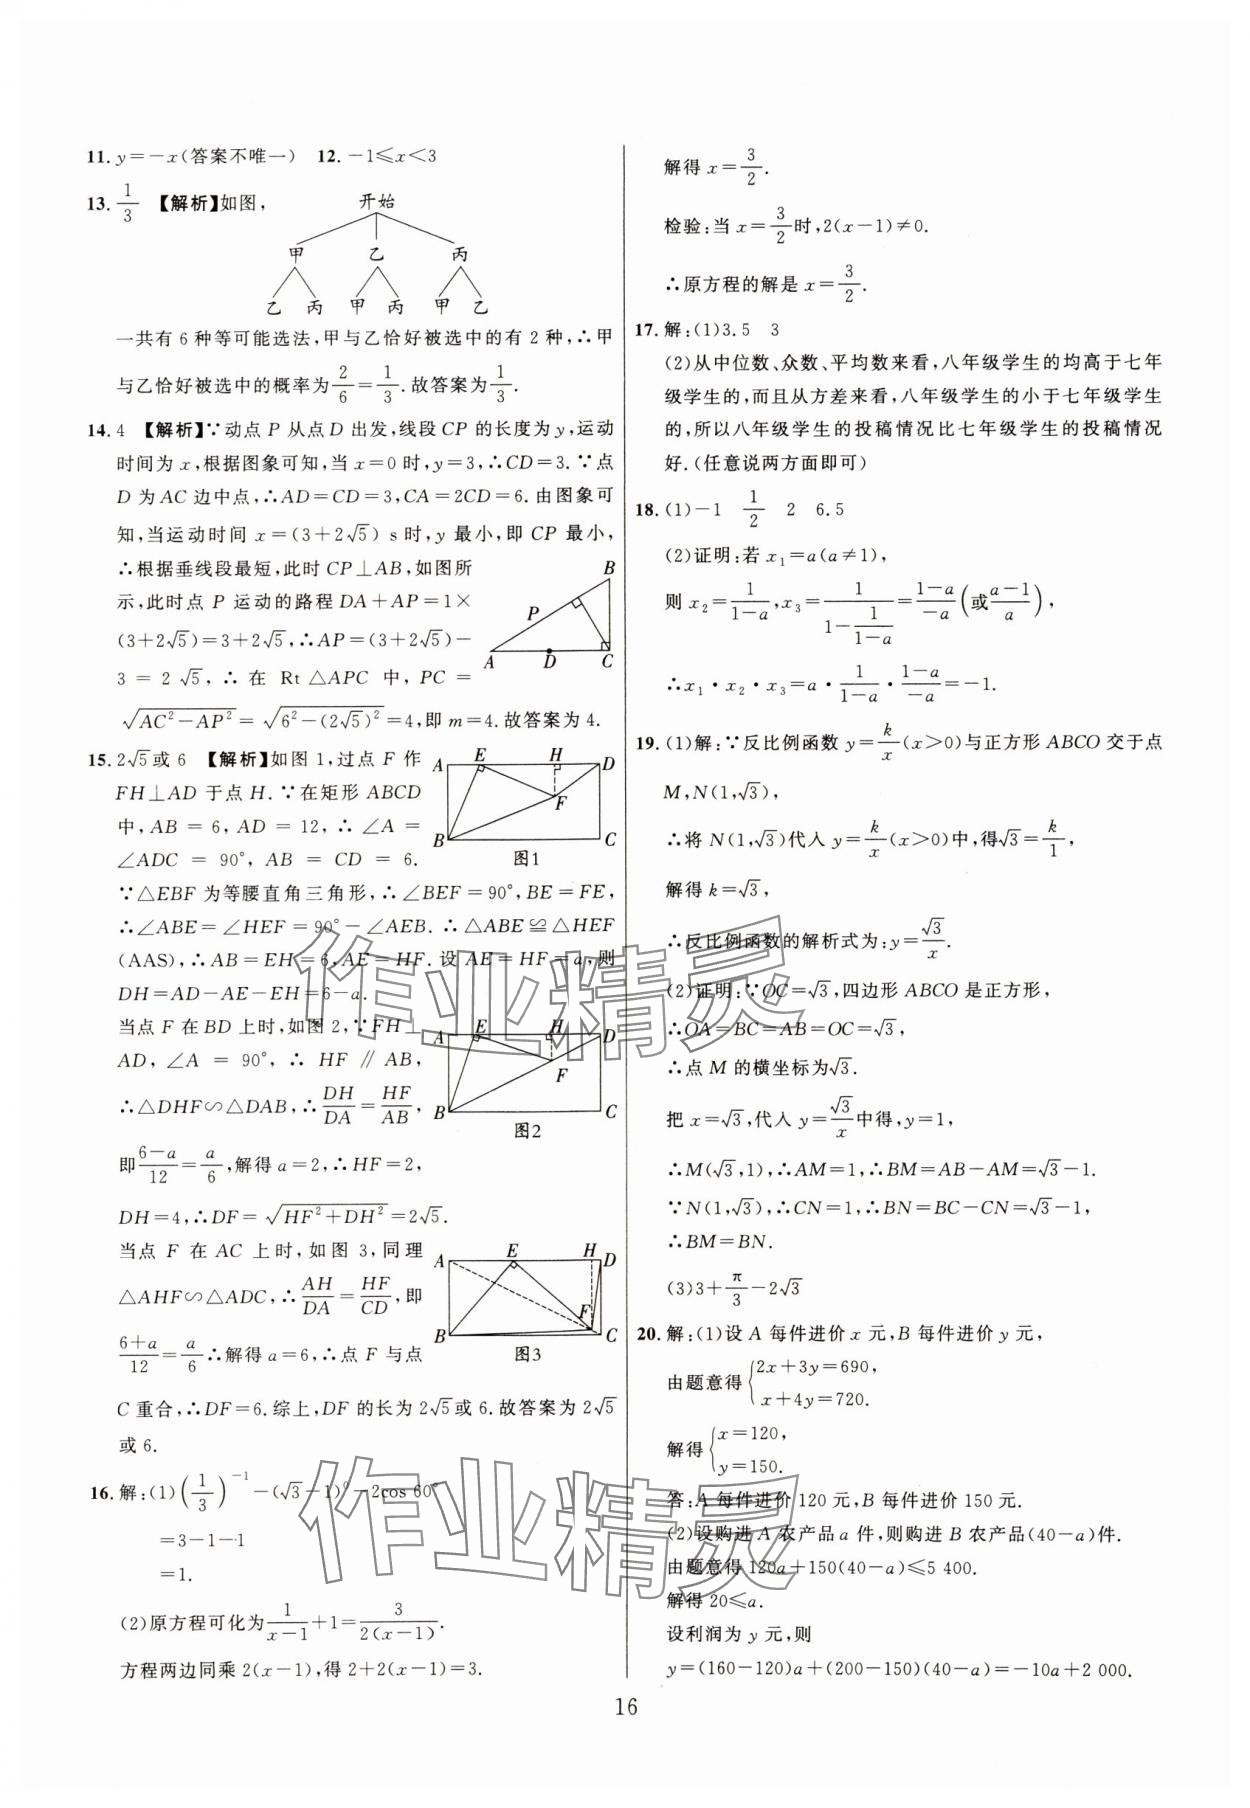 11. y=-x(答案不唯一)  12. -1≤x<3
13. 1/3 【解析】如图,
开始
甲 乙 丙
乙 丙 甲 丙 甲 乙
一共有 6 种等可能选法,甲与乙恰好被选中的有 2 种,∴甲
与乙恰好被选中的概率为2/6=1/3.故答案为1/3.
14. 4 【解析】∵动点 P 从点 D 出发,线段 CP 的长度为 y,运动
时间为 x,根据图象可知,当 x=0 时,y=3,∴CD=3.∵点
D 为 AC 边中点,∴AD=CD=3,CA=2CD=6.由图象可
知,当运动时间 x=(3+2√5) s 时,y 最小,即 CP 最小,
∴根据垂线段最短,此时 CP⊥AB,如图所
示,此时点 P 运动的路程 DA+AP=1×
(3+2√5)=3+2√5,∴AP=(3+2√5)-
3=2√5,∴在 Rt△APC 中,PC=
√(AC²-AP²)=√(6²-(2√5)²)=4,即 m=4.故答案为 4.
B
P
A D C
15. 2√5或 6 【解析】如图 1,过点 F 作
FH⊥AD 于点 H.∵在矩形 ABCD
中,AB=6,AD=12,∴∠A=
∠ADC=90°,AB=CD=6.
∵△EBF 为等腰直角三角形,∴∠BEF=90°,BE=FE,
∴∠ABE=∠HEF=90°-∠AEB.∴△ABE≌△HEF
(AAS),∴AB=EH=6,AE=HF.设 AE=HF=a,则
DH=AD-AE-EH=6-a.
A E H D
F
B C
图1
当点 F 在 BD 上时,如图 2,∵FH⊥
AD,∠A=90°,∴HF∥AB,
∴△DHF∽△DAB,∴DH/DA=HF/AB,
即(6-a)/12=a/6,解得 a=2,∴HF=2,
DH=4,∴DF=√(HF²+DH²)=2√5.
A E H D
F
B C
图2
当点 F 在 AC 上时,如图 3,同理
△AHF∽△ADC,∴AH/DA=HF/CD,即
(6+a)/12=a/6∴解得 a=6,∴点 F 与点
C 重合,∴DF=6.综上,DF 的长为 2√5或 6.故答案为 2√5
或 6.
A E H D
F
B C
图3
16. 解:(1)(1/3)⁻¹-(√3-1)⁰-2cos 60°
=3-1-1
=1.
(2)原方程可化为1/(x-1)+1=3/(2(x-1)).
方程两边同乘 2(x-1),得 2+2(x-1)=3.
解得 x=3/2.
检验:当 x=3/2时,2(x-1)≠0.
∴原方程的解是 x=3/2.
17. 解:(1)3.5  3
(2)从中位数、众数、平均数来看,八年级学生的均高于七年
级学生的,而且从方差来看,八年级学生的小于七年级学生
的,所以八年级学生的投稿情况比七年级学生的投稿情况
好.(任意说两方面即可)
18. (1)-1  1/2  2  6.5
(2)证明:若 x₁=a(a≠1),
则 x₂=1/(1-a),x₃=1/(1-1/(1-a))=(1-a)/(-a)(或(a-1)/a),
∴x₁·x₂·x₃=a·1/(1-a)·(1-a)/(-a)=-1.
19. (1)解:∵反比例函数 y=k/x(x>0)与正方形 ABCO 交于点
M,N(1,√3),
∴将 N(1,√3)代入 y=k/x(x>0)中,得√3=k/1,
解得 k=√3,
∴反比例函数的解析式为:y=√3/x.
(2)证明:∵OC=√3,四边形 ABCO 是正方形,
∴OA=BC=AB=OC=√3,
∴点 M 的横坐标为√3.
把 x=√3,代入 y=√3/x中得,y=1,
∴M(√3,1),∴AM=1,∴BM=AB-AM=√3-1.
∵N(1,√3),∴CN=1,∴BN=BC-CN=√3-1,
∴BM=BN.
(3)3+π/3-2√3
20. 解:(1)设 A 每件进价 x 元,B 每件进价 y 元,
由题意得{2x+3y=690,
x+4y=720.
解得{x=120,
y=150.
答:A 每件进价 120 元,B 每件进价 150 元.
(2)设购进 A 农产品 a 件,则购进 B 农产品(40-a)件.
由题意得 120a+150(40-a)≤5 400.
解得 20≤a.
设利润为 y 元,则
y=(160-120)a+(200-150)(40-a)=-10a+2 000.
16
作业精灵
作业精灵